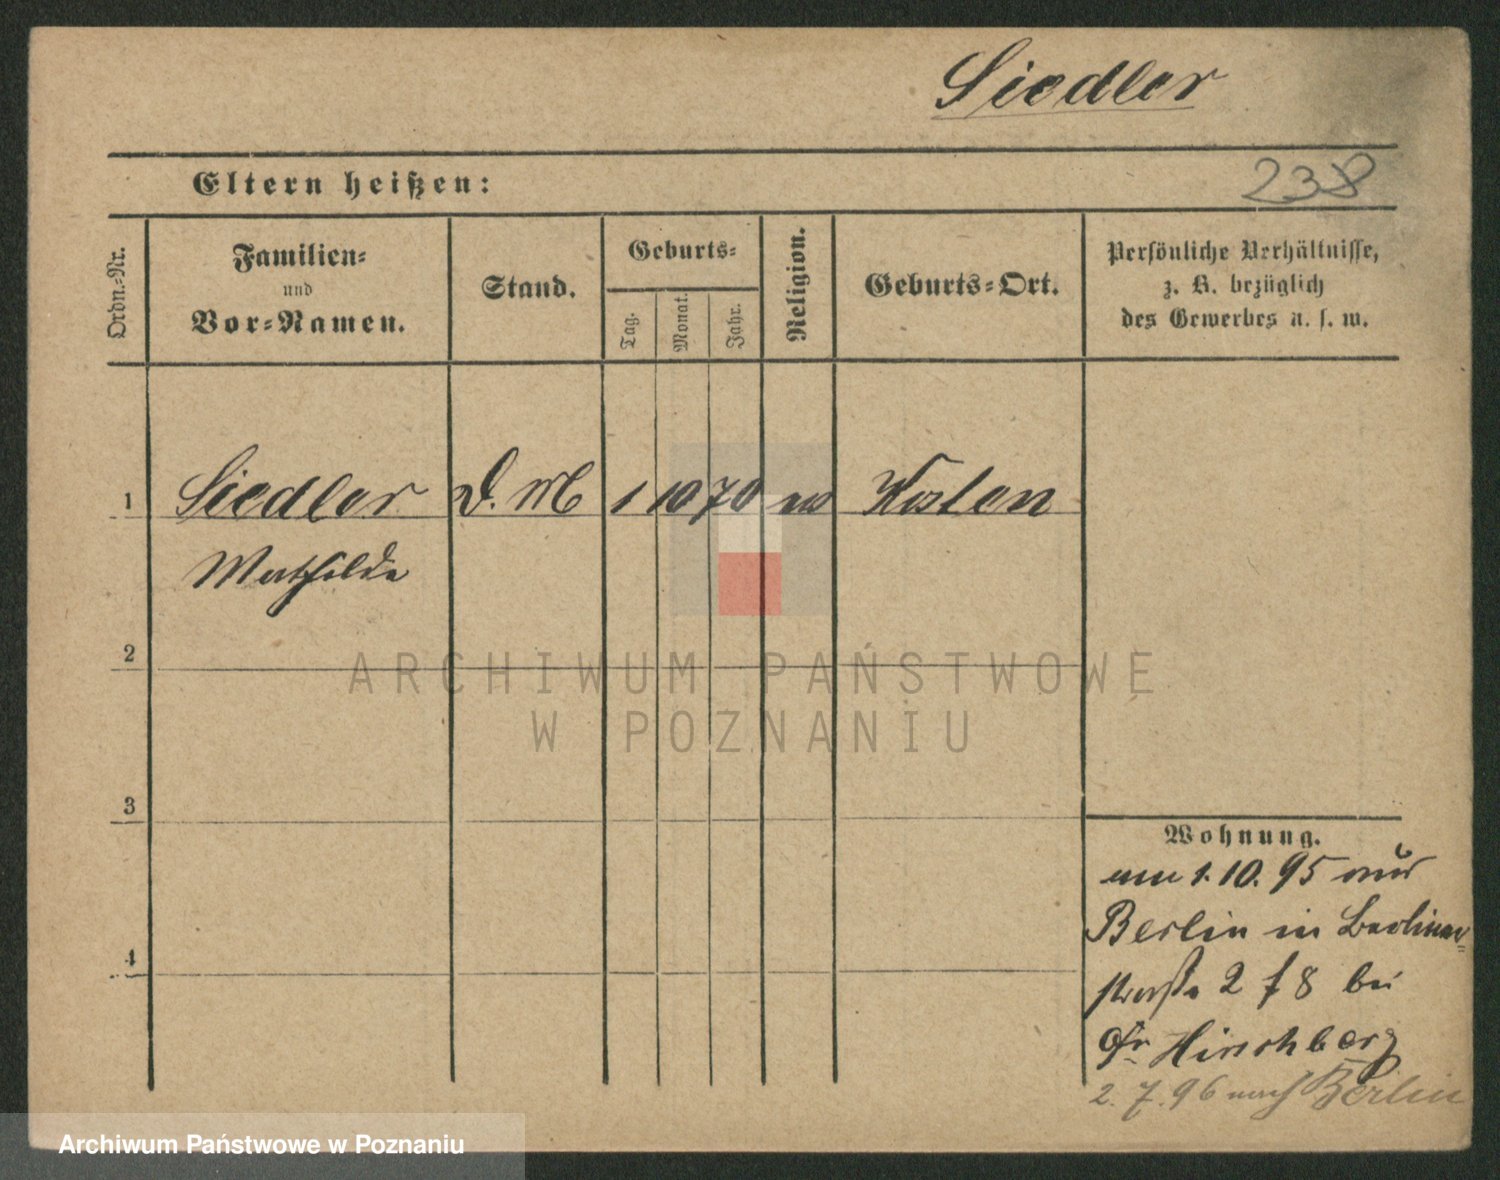 Siedler
Eltern heißen:
238
Ordn.-Nr.
Familien-
und
Vor-Namen.
Stand.
Geburts-
Tag.
Monat.
Jahr.
Religion.
Geburts-Ort.
Persönliche Verhältnisse,
z. B. bezüglich
des Gewerbes u. s. w.
1 Siedler D. M 1 10 70 Kosten
Mathilde
2
3
4
ARCHIWUM PAŃSTWOWE
W POZNANIU
Wohnung.
am 1. 10. 95 aus
Berlin in Berliner-
straße 2 f 8 bei
Fr Hirschberg
2. 7. 96 nach Berlin
Archiwum Państwowe w Poznaniu